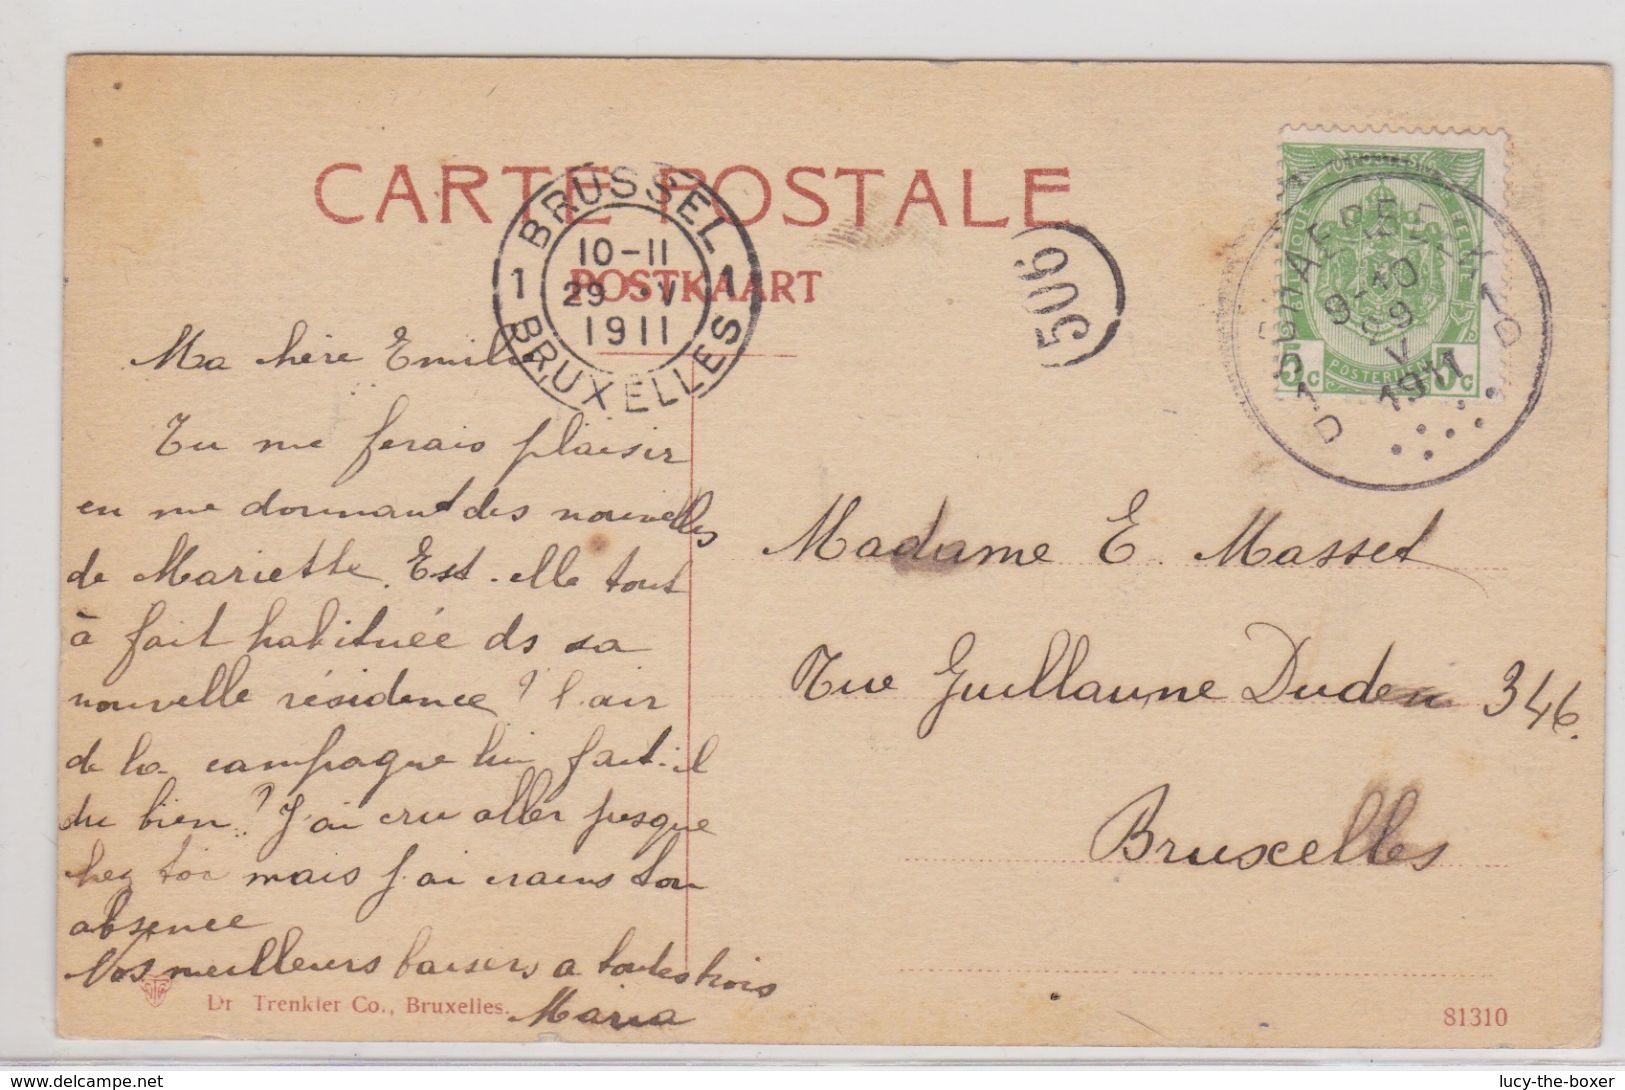 CARTE POSTALE
POSTKAART
BRUSSEL
1 1
10-11
29 V
1911
BRUXELLES
506
SCHAERBEEK
1D 1D
9-10
29
V
1911
BELGIQUE BELGIE
5c 5c
POSTERIJEN
Ma hère Emilie,
Tu me ferais plaisir
en me donnant des nouvelles
de Mariette. Est-elle tout
à fait habituée ds sa
nouvelle résidence? l'air
de la campagne lui fait-il
du bien? J'ai cru aller jusque
chez toi mais j'ai crains ton
absence
Nos meilleurs baisers a toutes trois
Maria
Madame E. Masset
Rue Guillaume Duden 346.
Bruxelles
Dr Trenkler Co., Bruxelles.
81310
delcampe.net
lucy-the-boxer